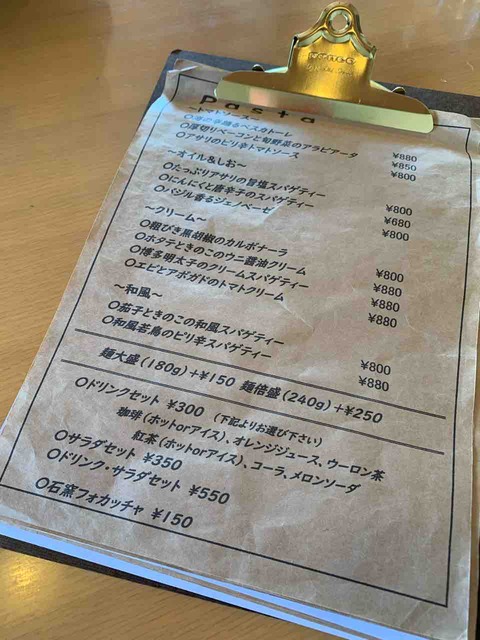 pasta
～トマトソース～
香るペスカトーレ ¥880
〇厚切りベーコンと旬野菜のアラビアータ ¥850
〇アサリのピリ辛トマトソース ¥800
～オイル&しお～
〇たっぷりアサリの旨塩スパゲティー ¥800
〇にんにくと唐辛子のスパゲティー ¥680
〇バジル香るジェノベーゼ ¥800
～クリーム～
〇粗びき黒胡椒のカルボナーラ ¥800
〇ホタテときのこのウニ醤油クリーム ¥880
〇博多明太子のクリームスパゲティー ¥880
〇エビとアボガドのトマトクリーム ¥880
～和風～
〇茄子ときのこの和風スパゲティー ¥800
〇和風若鳥のピリ辛スパゲティー ¥880
麺大盛(180g)+¥150 麺倍盛(240g)+¥250
〇ドリンクセット ¥300 (下記よりお選び下さい)
珈琲(ホットorアイス)、オレンジジュース、ウーロン茶
紅茶(ホットorアイス)、コーラ、メロンソーダ
〇サラダセット ¥350
〇ドリンク・サラダセット ¥550
〇石窯フォカッチャ ¥150